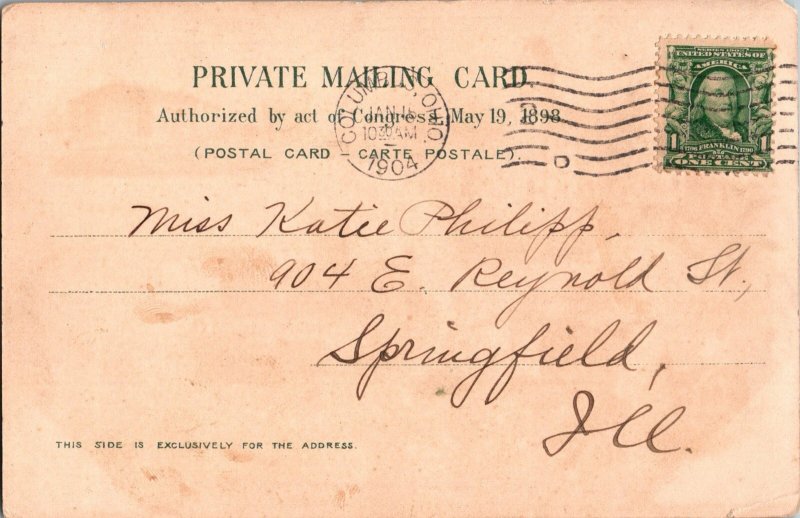 PRIVATE MAILING CARD.
Authorized by act of Congress May 19, 1898.
(POSTAL CARD - CARTE POSTALE).
COLUMBUS, OHIO.
JAN
1030 AM
1904
D
SERIES 1902
UNITED STATES OF
AMERICA
1706 FRANKLIN 1790
1 POSTAGE 1
ONE CENT
Miss Katie Philipp,
904 E. Reynold St.,
Springfield,
Ill.
THIS SIDE IS EXCLUSIVELY FOR THE ADDRESS.